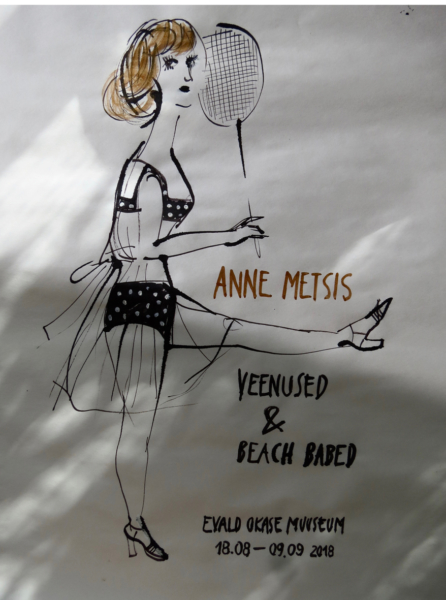 ANNE METSIS
VEENUSED
&
BEACH BABED
EVALD OKASE MUUSEUM
18.08 — 09.09 2018